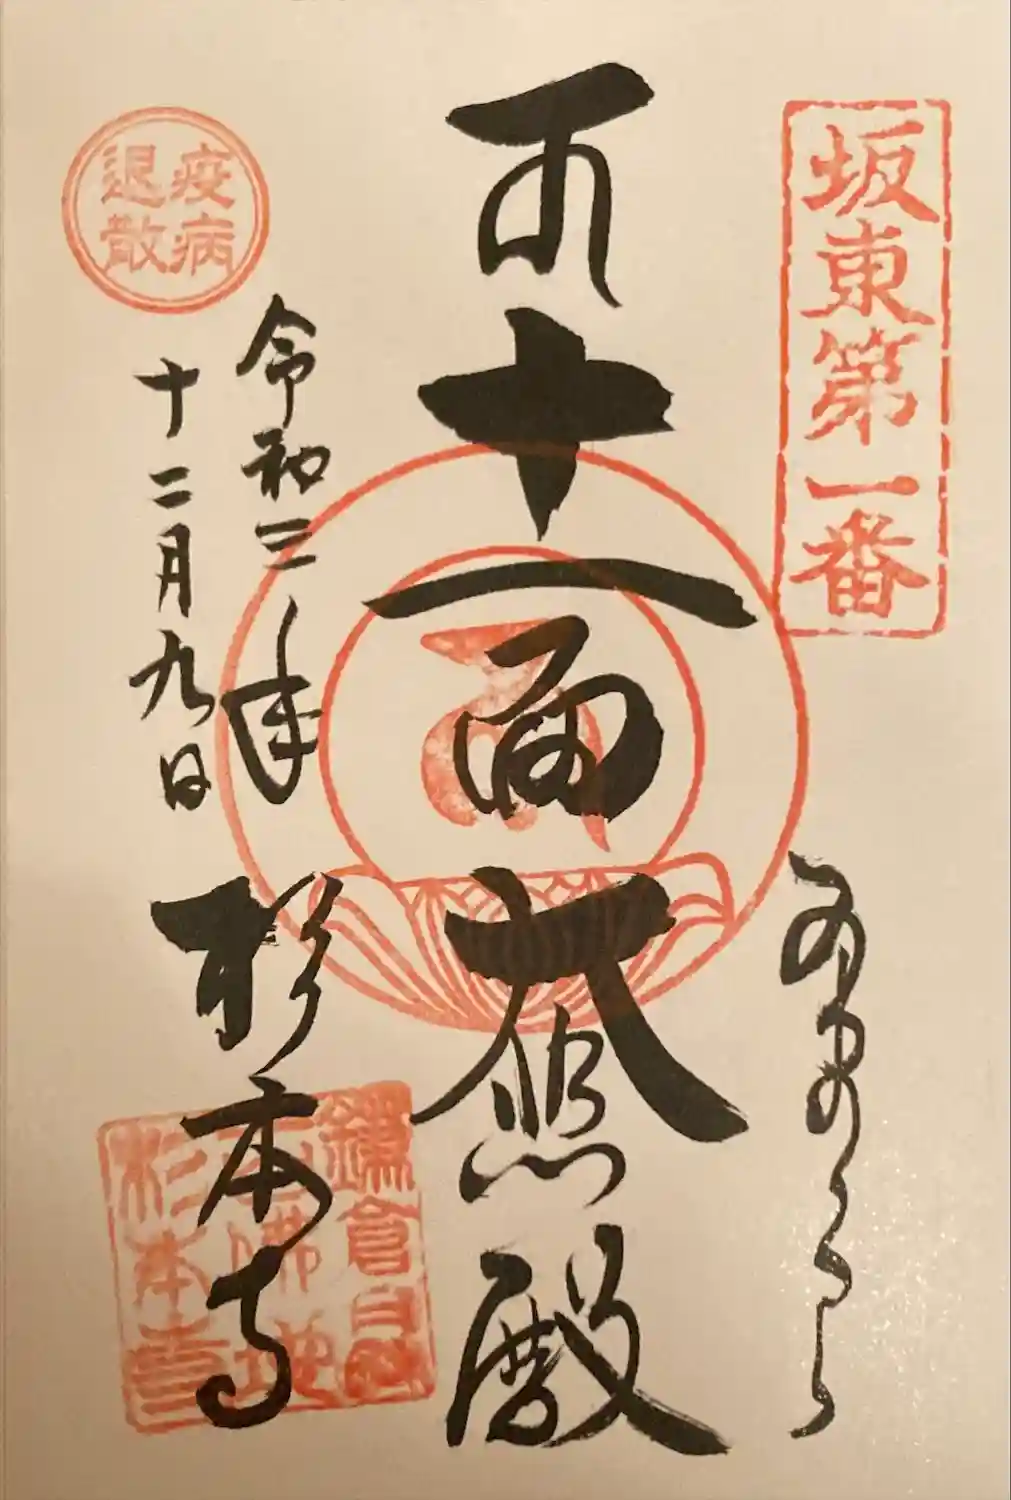 坂東第一番
十一面大悲殿
疫病退散
令和三年
十二月九日
杉本寺
鎌倉
佛地
杉本寺